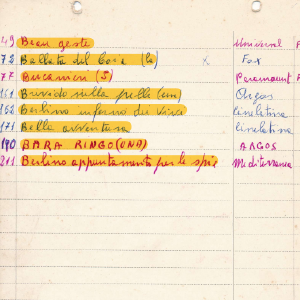 49 Beau geste Universal
72 Ballata del Boia (la) x Fox
77 Bucanieri (I) Paramount
151 Brivido sulla pelle (un) Argos
162 Berlino inferno dei vivi Cineletina
171 Bella avventura Cineletina
190 BARA RINGO (UNA) ARGOS
211 Berlino appuntamento per le spie Mediterranea